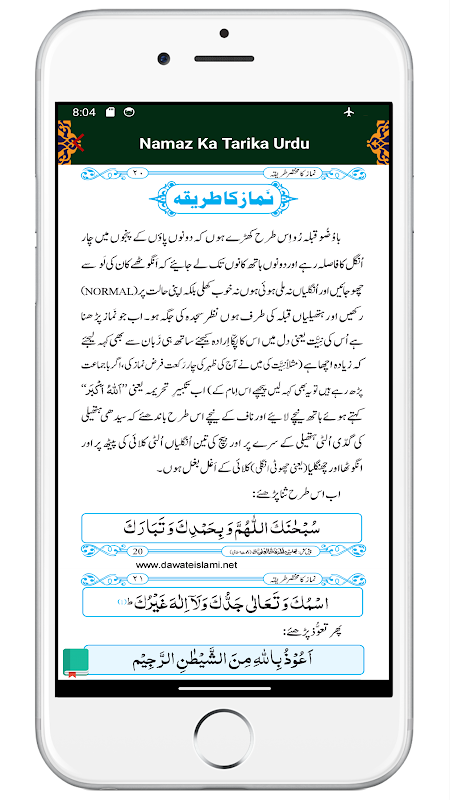 8:04
Namaz Ka Tarika Urdu
نماز کا مختصر طریقہ
۲۰
نَماز کا طریقہ
باوُضُو قبلہ رُو اِس طرح کھڑے ہوں کہ دونوں پاؤں کے پنجوں میں چار
اُنگل کا فاصلہ رہے اور دونوں ہاتھ کانوں تک لے جائیے کہ انگوٹھے کان کی لَو سے
چھو جائیں اور اُنگلیاں نہ ملی ہوئی ہوں نہ خوب کھلی بلکہ اپنی حالت پر (NORMAL)
رکھیں اور ہتھیلیاں قبلہ کی طرف ہوں نظر سجدہ کی جگہ ہو۔ اب جو نماز پڑھنا
ہے اُس کی نِیَّت یعنی دل میں اس کا پکّا ارادہ کیجئے ساتھ ہی زَبان سے بھی کہہ لیجئے
کہ زیادہ اچھا ہے (مثلاً نیّت کی میں نے آج کی ظہر کی چار رَکعت فرض نماز کی، اگر با جماعت
پڑھ رہے ہیں تو یہ بھی کہہ لیں پیچھے اس امام کے) اب تکبیرِ تحریمہ یعنی ”اَللّٰهُ اَکْبَر“
کہتے ہوئے ہاتھ نیچے لائیے اور ناف کے نیچے اس طرح باندھئے کہ سیدھی ہتھیلی
کی گدّی اُلٹی ہتھیلی کے سرے پر اور بیچ کی تین اُنگلیاں اُلٹی کلائی کی پیٹھ پر اور
انگوٹھا اور چھنگلیا (یعنی چھوٹی انگلی) کلائی کے اَغل بغل ہوں۔
اب اس طرح ثنا پڑھئے:
سُبْحٰنَكَ اللّٰهُمَّ وَ بِحَمْدِكَ وَ تَبَارَكَ
20
www.dawateislami.net
نماز کا مختصر طریقہ
۲۱
اسْمُكَ وَ تَعَالٰى جَدُّكَ وَلَآ اِلٰهَ غَيْرُكَ ط
پھر تعوُّذ پڑھئے:
اَعُوْذُ بِاللّٰهِ مِنَ الشَّيْطٰنِ الرَّجِيْمِ